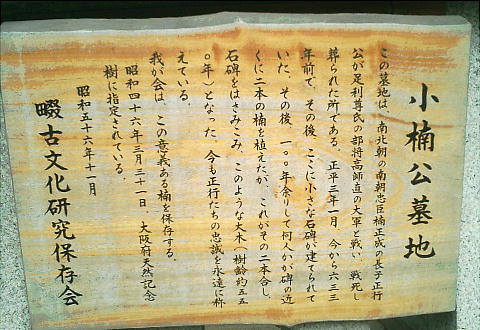 小楠公墓地
この墓地は、南北朝の南朝忠臣楠正成の長子正行
公が足利尊氏の部将高師直の大軍と戦い、戦死し
葬られた所である。正平三年一月、今から六三三
年前で、その後、ここに小さな石碑が建てられて
いた。その後、一〇〇年余りして何人かが碑の近
くに二本の楠を植えたが、これがその二本合し、
石碑をはさみこみ、このような大木（樹齢約五五
〇年）となった。今も正行たちの忠誠を永遠に称
えている。
我が会は、この意義ある楠を保存する。
昭和四十六年三月三十一日、大阪府天然記念
樹に指定されている。
昭和五十六年十一月
畷古文化研究保存会